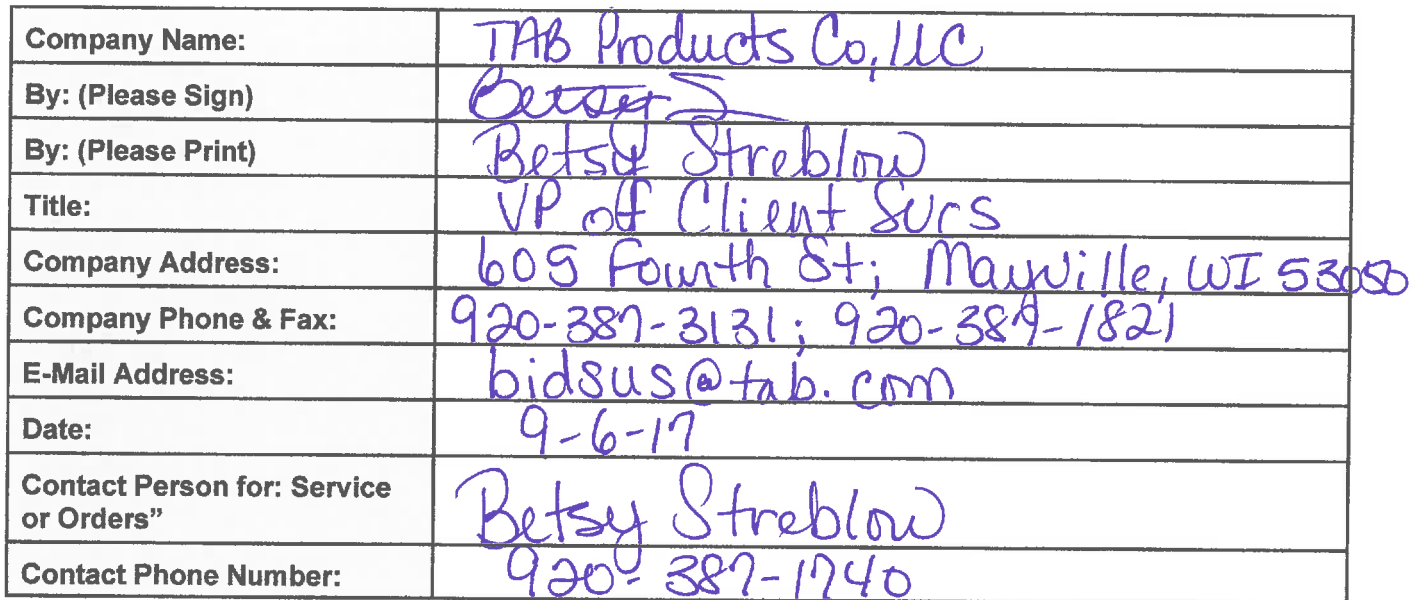 Company Name: TAB Products Co, LLC
By: (Please Sign) Betsy S
By: (Please Print) Betsy Streblow
Title: VP of Client Svcs
Company Address: 605 Fourth St; Mayville, WI 53050
Company Phone & Fax: 920-387-3131; 920-387-1821
E-Mail Address: bidsus@tab.com
Date: 9-6-17
Contact Person for: Service
or Orders” Betsy Streblow
Contact Phone Number: 920-387-1740